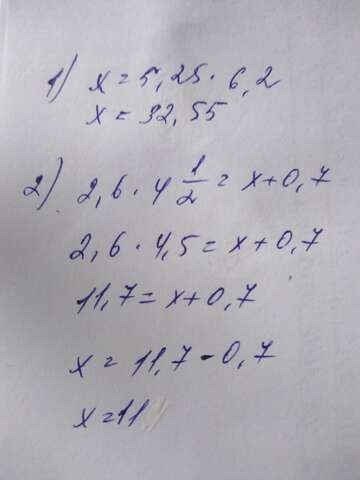 1) x = 5,25 · 6,2
x = 32,55
2) 2,6 · 4 1/2 = x + 0,7
2,6 · 4,5 = x + 0,7
11,7 = x + 0,7
x = 11,7 - 0,7
x = 11